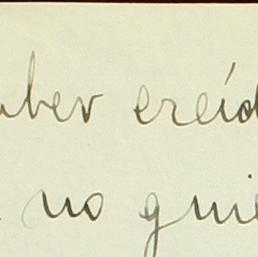 uber creíd
no quie